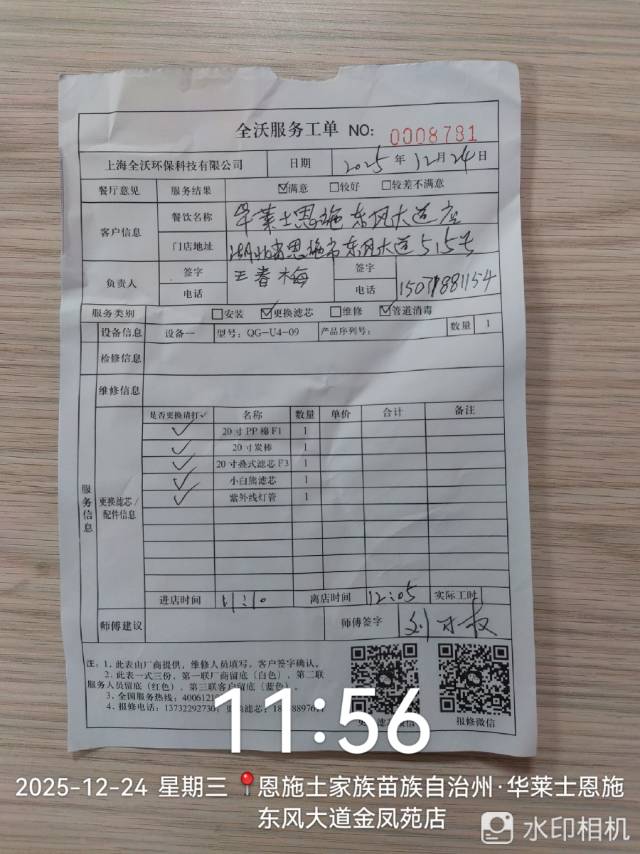 全沃服务工单 NO: 0008781
上海全沃环保科技有限公司 日期 2025 年 12 月 24 日
餐厅意见 服务结果 ☑满意 □较好 □较差不满意
客户信息 餐饮名称 华莱士恩施东风大道店
门店地址 湖北省恩施市东风大道515号
负责人 签字 王春梅 签字
电话 电话
服务类别 □安装 ☑更换滤芯 □维修 ☑管道消毒
服务信息
设备信息 设备一 型号：QG-U4-09 产品序列号： 数量 1
检修信息
维修信息
更换滤芯/配件信息
是否更换请打✓ 名称 数量 单价 合计 备注
✓ 20寸PP棉F1 1
✓ 20寸炭棒 1
✓ 20寸叠式滤芯F3 1
✓ 小白熊滤芯 1
✓ 紫外线灯管 1
进店时间 11:10 离店时间 12:05 实际工时
师傅建议 师傅签字
注：1，此表由厂商提供，维修人员填写，客户签字确认。
2，此表一式三份，第一联厂商留底（白色），第二联
服务人员留底（红色），第三联客户留底（蓝色）。
3，全国服务热线：
4，报修电话：13732292730，更换滤芯：
报修微信
11:56
2025-12-24 星期三 恩施土家族苗族自治州·华莱士恩施
东风大道金凤苑店
水印相机